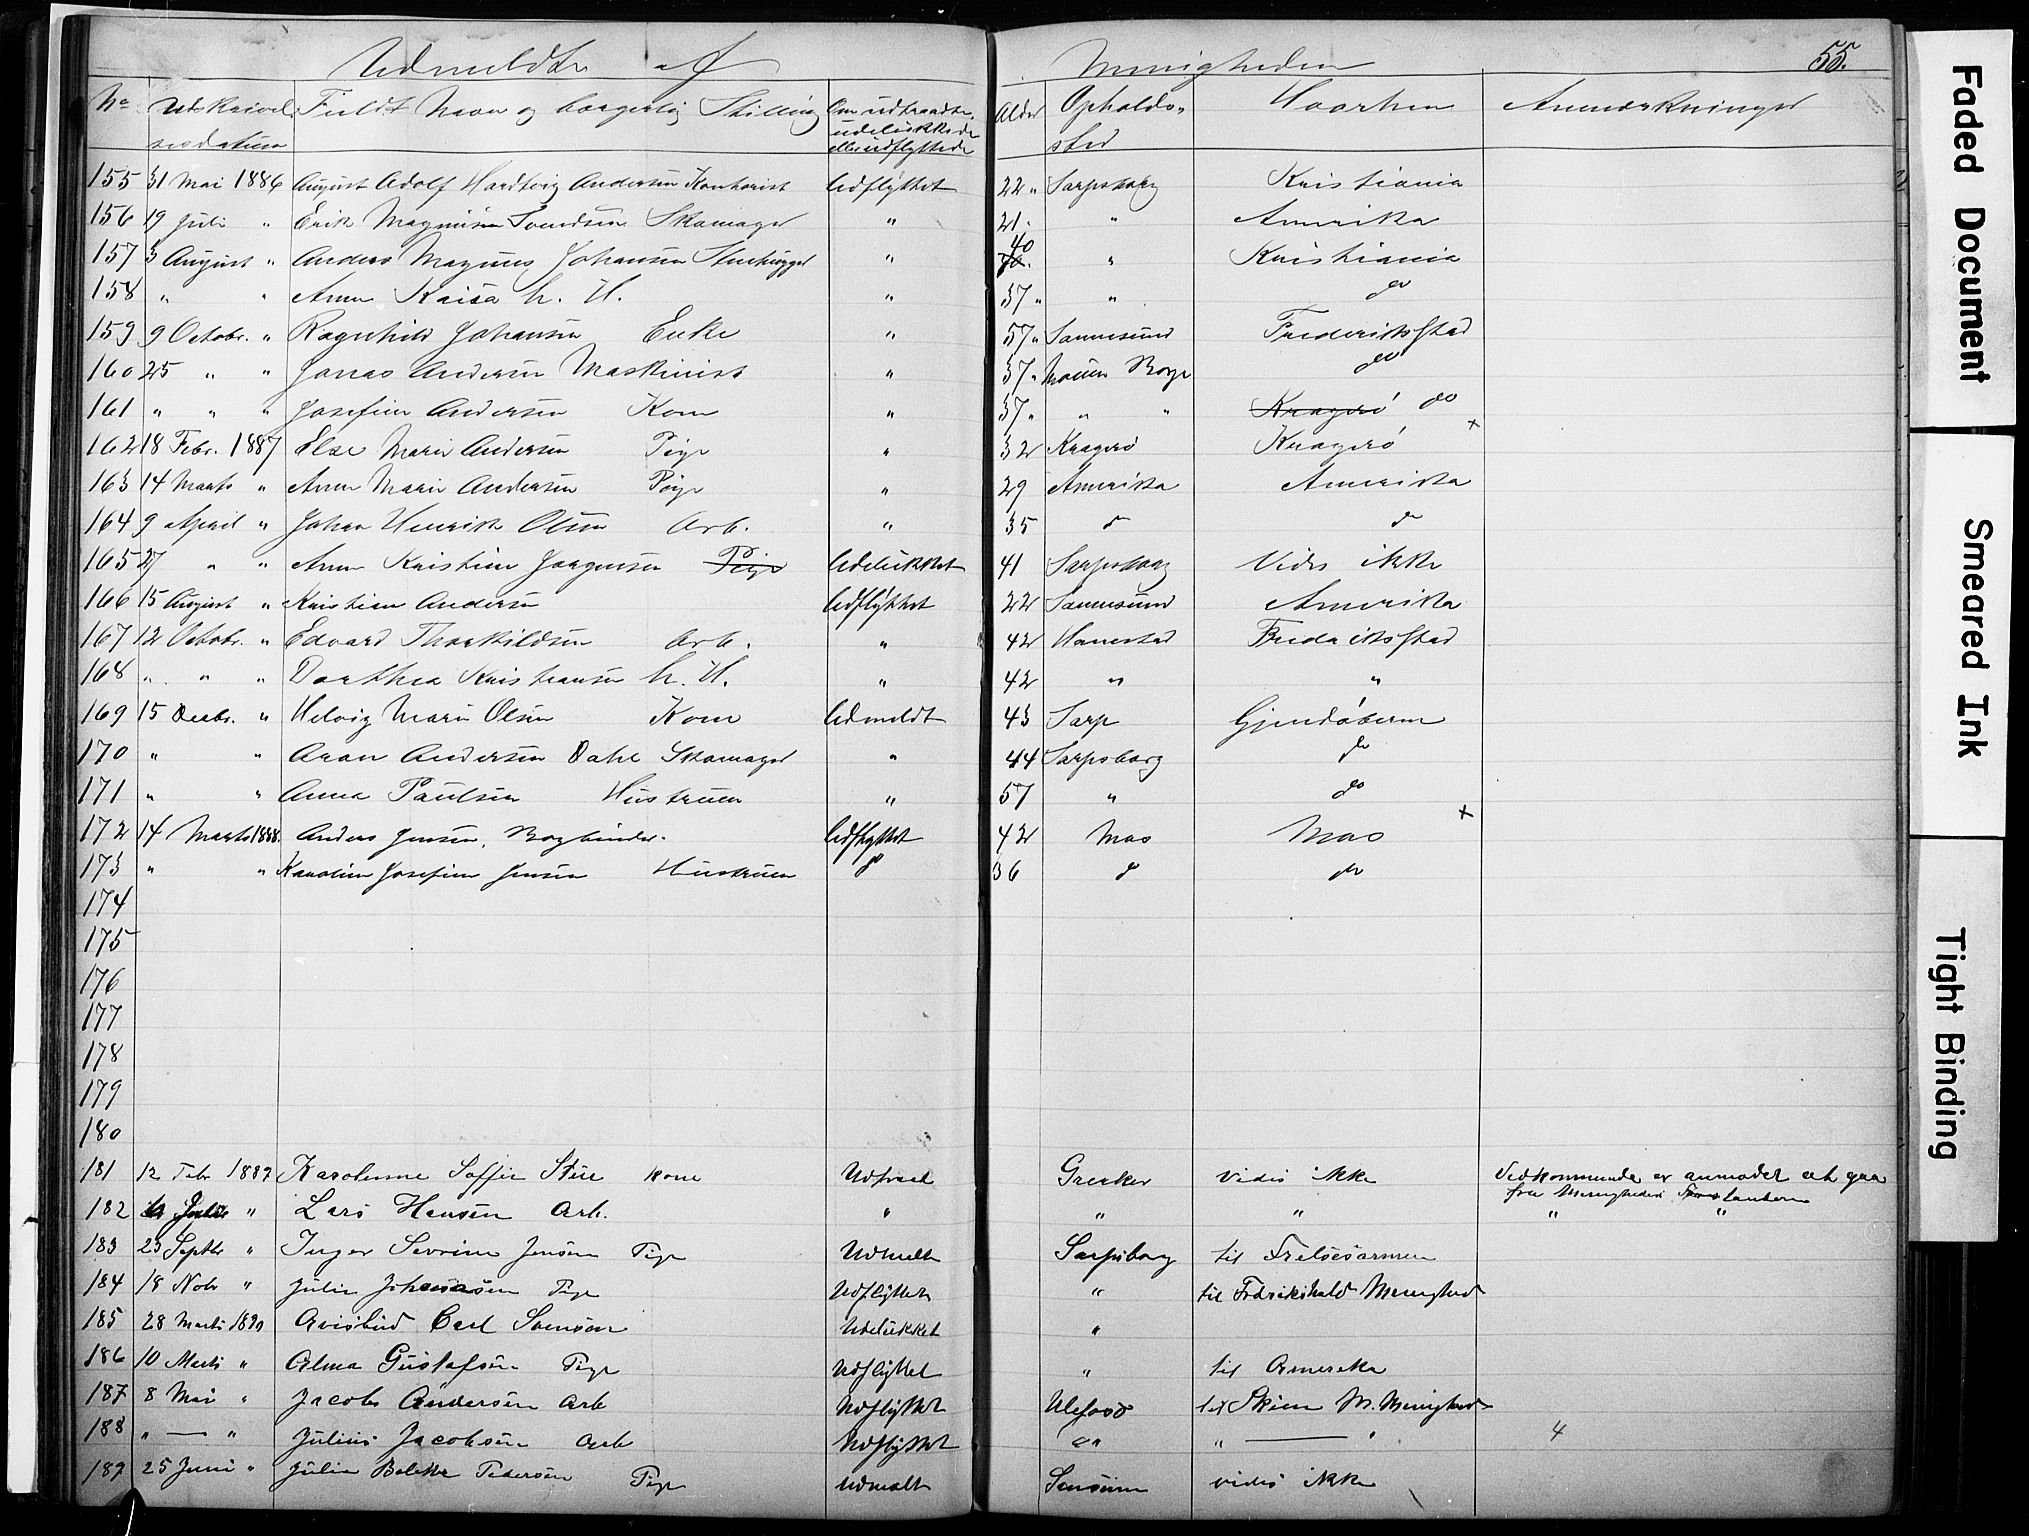 Udmeldte af Menigheden 55.
No Udskrivel- Fuldt Navn og borgerlig Stilling Om udtraadte, Alder Opholds- Hvorhen Anmærkninger
sesdatum udelukkede sted
eller udflyttede
155 31 Mai 1886 August Adolf Hardtvig Andersen Kontorist Udflyttet 22 " Sarpsborg Kristiania
156 19 Juli " Erik Magnusen Svendsen Skomager " 21 " " Amerika
157 3 August " Anders Magnus Johansen Stenhugger " 40 " Kristiania
158 " " Anne Kaisa h. H. " 37 " " do
159 9 Octobr. " Ragnhild Johansen Enke " 57 " Sannesund Frederiksstad
160 25 " " Jonas Andersen Maskinist " 37 " Moum Borge do
161 " " " Josefine Andersen Kone " 37 " " " Kragerö do
162 18 Febr. 1887 Else Marie Andersen Pige " 32 Kragerö Kragerö x
163 14 Marts " Anne Marie Andersen Pige " 29 Amerika Amerika
164 9 April " Johan Henrik Olsen Arb. " 35 do do
165 27 " " Anne Kristine Jørgensen Pige Udelukket 41 Sarpsborg Vides ikke
166 15 August " Kristian Andersen Udflyttet 22 Sannesund Amerika
167 12 Octobr. " Edvard Thorkildsen Arb. " 42 Hannestad Frederiksstad
168 " " " Dorthea Kristiansen h. H. " 42 " "
169 15 Decbr. " Helvig Marie Olsen Kone Udmeldt 43 Sarp Gjendøberne
170 " " Aron Andersen Dahl Skomager " 44 Sarpsborg do
171 " " Anna Paulsen Hustruen " 57 " do
172 14 Marts 1888. Anders Jensen, Bogbinder. Udflyttet 42 Mos Mos x
173 " " Karoline Josefine Jensen Hustruen do 36 do do
174
175
176
177
178
179
180
181 12 Febr 1889 Karolenne Soffie Kone Udtraad Greaker vides ikke Vedkommende er anmodet at gaa
fra Menigheden
182 Juli " Lars Hansen Arb. " " " " "
183 23 Septbr " Inger Sevrine Jensen Pige Udmelt Sarpsborg til Frelsesarmeen
184 18 Nobr " Julie Johansen Pige Udflyttet " til Fdrikshald Menighed
185 28 Marts 1890 Carl Svensen Udelukket "
186 10 Marts " Alma Gustafsen Pige Udflyttet " til Amerika
187 8 Mai " Jacob Andersen Arb Udflyttet Ulefoss til Skien M. Menighed
188 " — " Julius Jacobsen Arb Udflyttet " " — " 4
189 25 Juni " Julie Pedersen Pige Udmelt vides ikke
Faded Document
Smeared Ink
Tight Binding